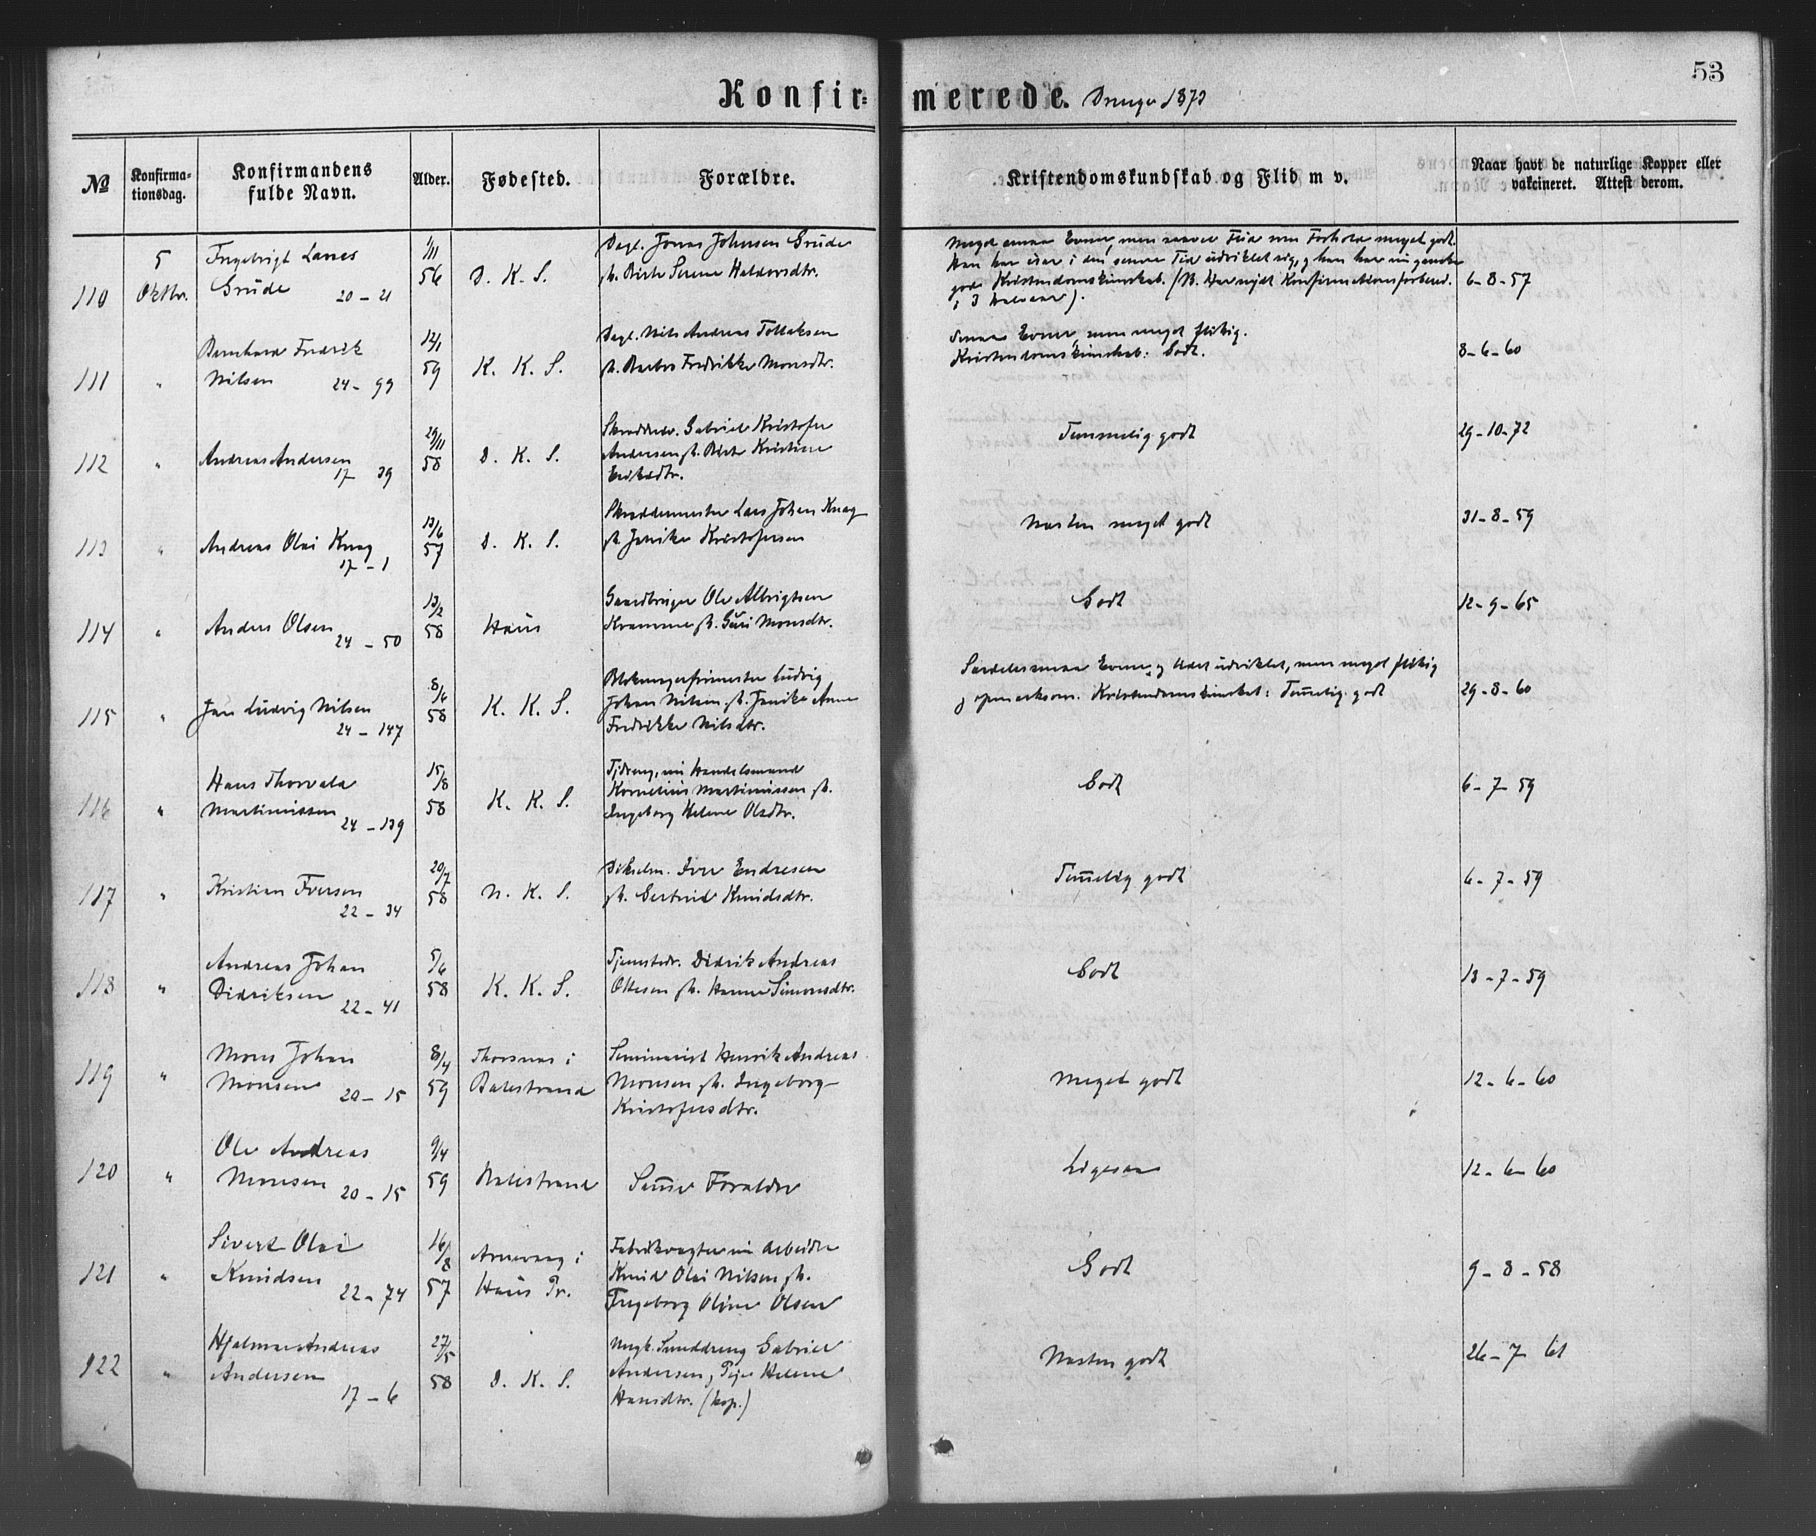 53
Konfirmerede. Drenge 1873
№ Konfirmationsdag. Konfirmandens fulde Navn. Alder. Fødested. Forældre. Kristendomskundskab og Flid m v. Naar havt de naturlige Kopper eller vakcineret. Attest derom.
110 5 Oktbr. Ingebrigt Lauses Grude 20 - 21 1/11 56 D. K. S.
Dagl. Jonas Johnsen Grude
h. Birte Serene Haldorsdtr.
Meget smaa Evner, men Flid og Forhold meget godt.
Han har især i den senere Tid udviklet sig, og han har nu ganske
god Kristendomskundskab. (NB. Har nydt Konfirmationsforbered.
i 3 Halvaar).
6-8-57
111 " Bernhard Fredrik Nilsen 24 - 99 12/1 59 K. K. S.
Dagl. Nils Andreas Tollaksen
h. Barbro Fredrikke Monsdtr.
Smaa Evner, men meget flittig.
Kristendomskundskab: Godt.
8-6-60
112 " Andreas Andersen 17 39 29/11 58 D. K. S.
Skrædder. Gabriel Kristofer
Andersen h. Birte Kristine
Temmelig godt
29-10-72
113 " Andreas Olai Knag 17 - 1 13/6 57 D. K. S.
Skræddermester Lars Johan Knag
h. Jenrike Kristofersen
Næsten meget godt
31-8-59
114 " Anders Olsen 24 - 50 13/2 58 Haus
Gaardbruger Ole Albrigtsen
h. Guri Monsdtr.
Godt
12-9-65
115 " Jan Ludvig Nilsen 24 - 147 8/6 58 K. K. S.
Blokmagerformester Ludvig
Johan Nilsen h. Janike Anne
Fredrikke Nilsdtr.
Særdeles smaa Evner og lidet udviklet, men meget flittig
og opmærksom. Kristendomskundskab: Temelig godt
29-8-60
116 " Hans Thorvald Martinussen 24 - 139 15/8 58 K. K. S.
Tjdreng, nu Handelsmand
Kornelius Martinussen h.
Ingeborg Helene Olsdtr.
Godt
6-7-59
117 " Kristian Iversen 22 - 34 20/7 58 N. K. S.
Iver Endresen
h. Gertrud Knudsdtr.
Temelig godt
6-7-59
118 " Andreas Johan Didriksen 22 - 41 5/6 58 K. K. S.
Tjenestedr. Didrik Andreas
Ottesen h. Hanne Simonsdtr.
Godt
13-7-59
119 " Mons Johan Monsen 20 - 15 8/4 59 Thorsnes i Balestrand
Seminarist Henrik Andreas
Monsen h. Ingeborg
Kristofersdtr.
Meget godt
12-6-60
120 " Ole Andreas Monsen 20 - 15 9/4 59 Balestrand
Same Forældre
Ligesaa
12-6-60
121 " Sivert Olai Knudsen 22 - 74 16/8 57 Arnevaag i Haus Pr.
Fabrikvogter nu Arbeider
Knud Olai Nilsen h.
Ingeborg Oline Olsen
Godt
9-8-58
122 " Hjalmar Andreas Andersen 17 - 6 27/5 58 D. K. S.
Ungk. Smeddreng Gabriel
Andersen, Pige Helene
Hansdtr. (kop.)
Næsten godt
26-7-61